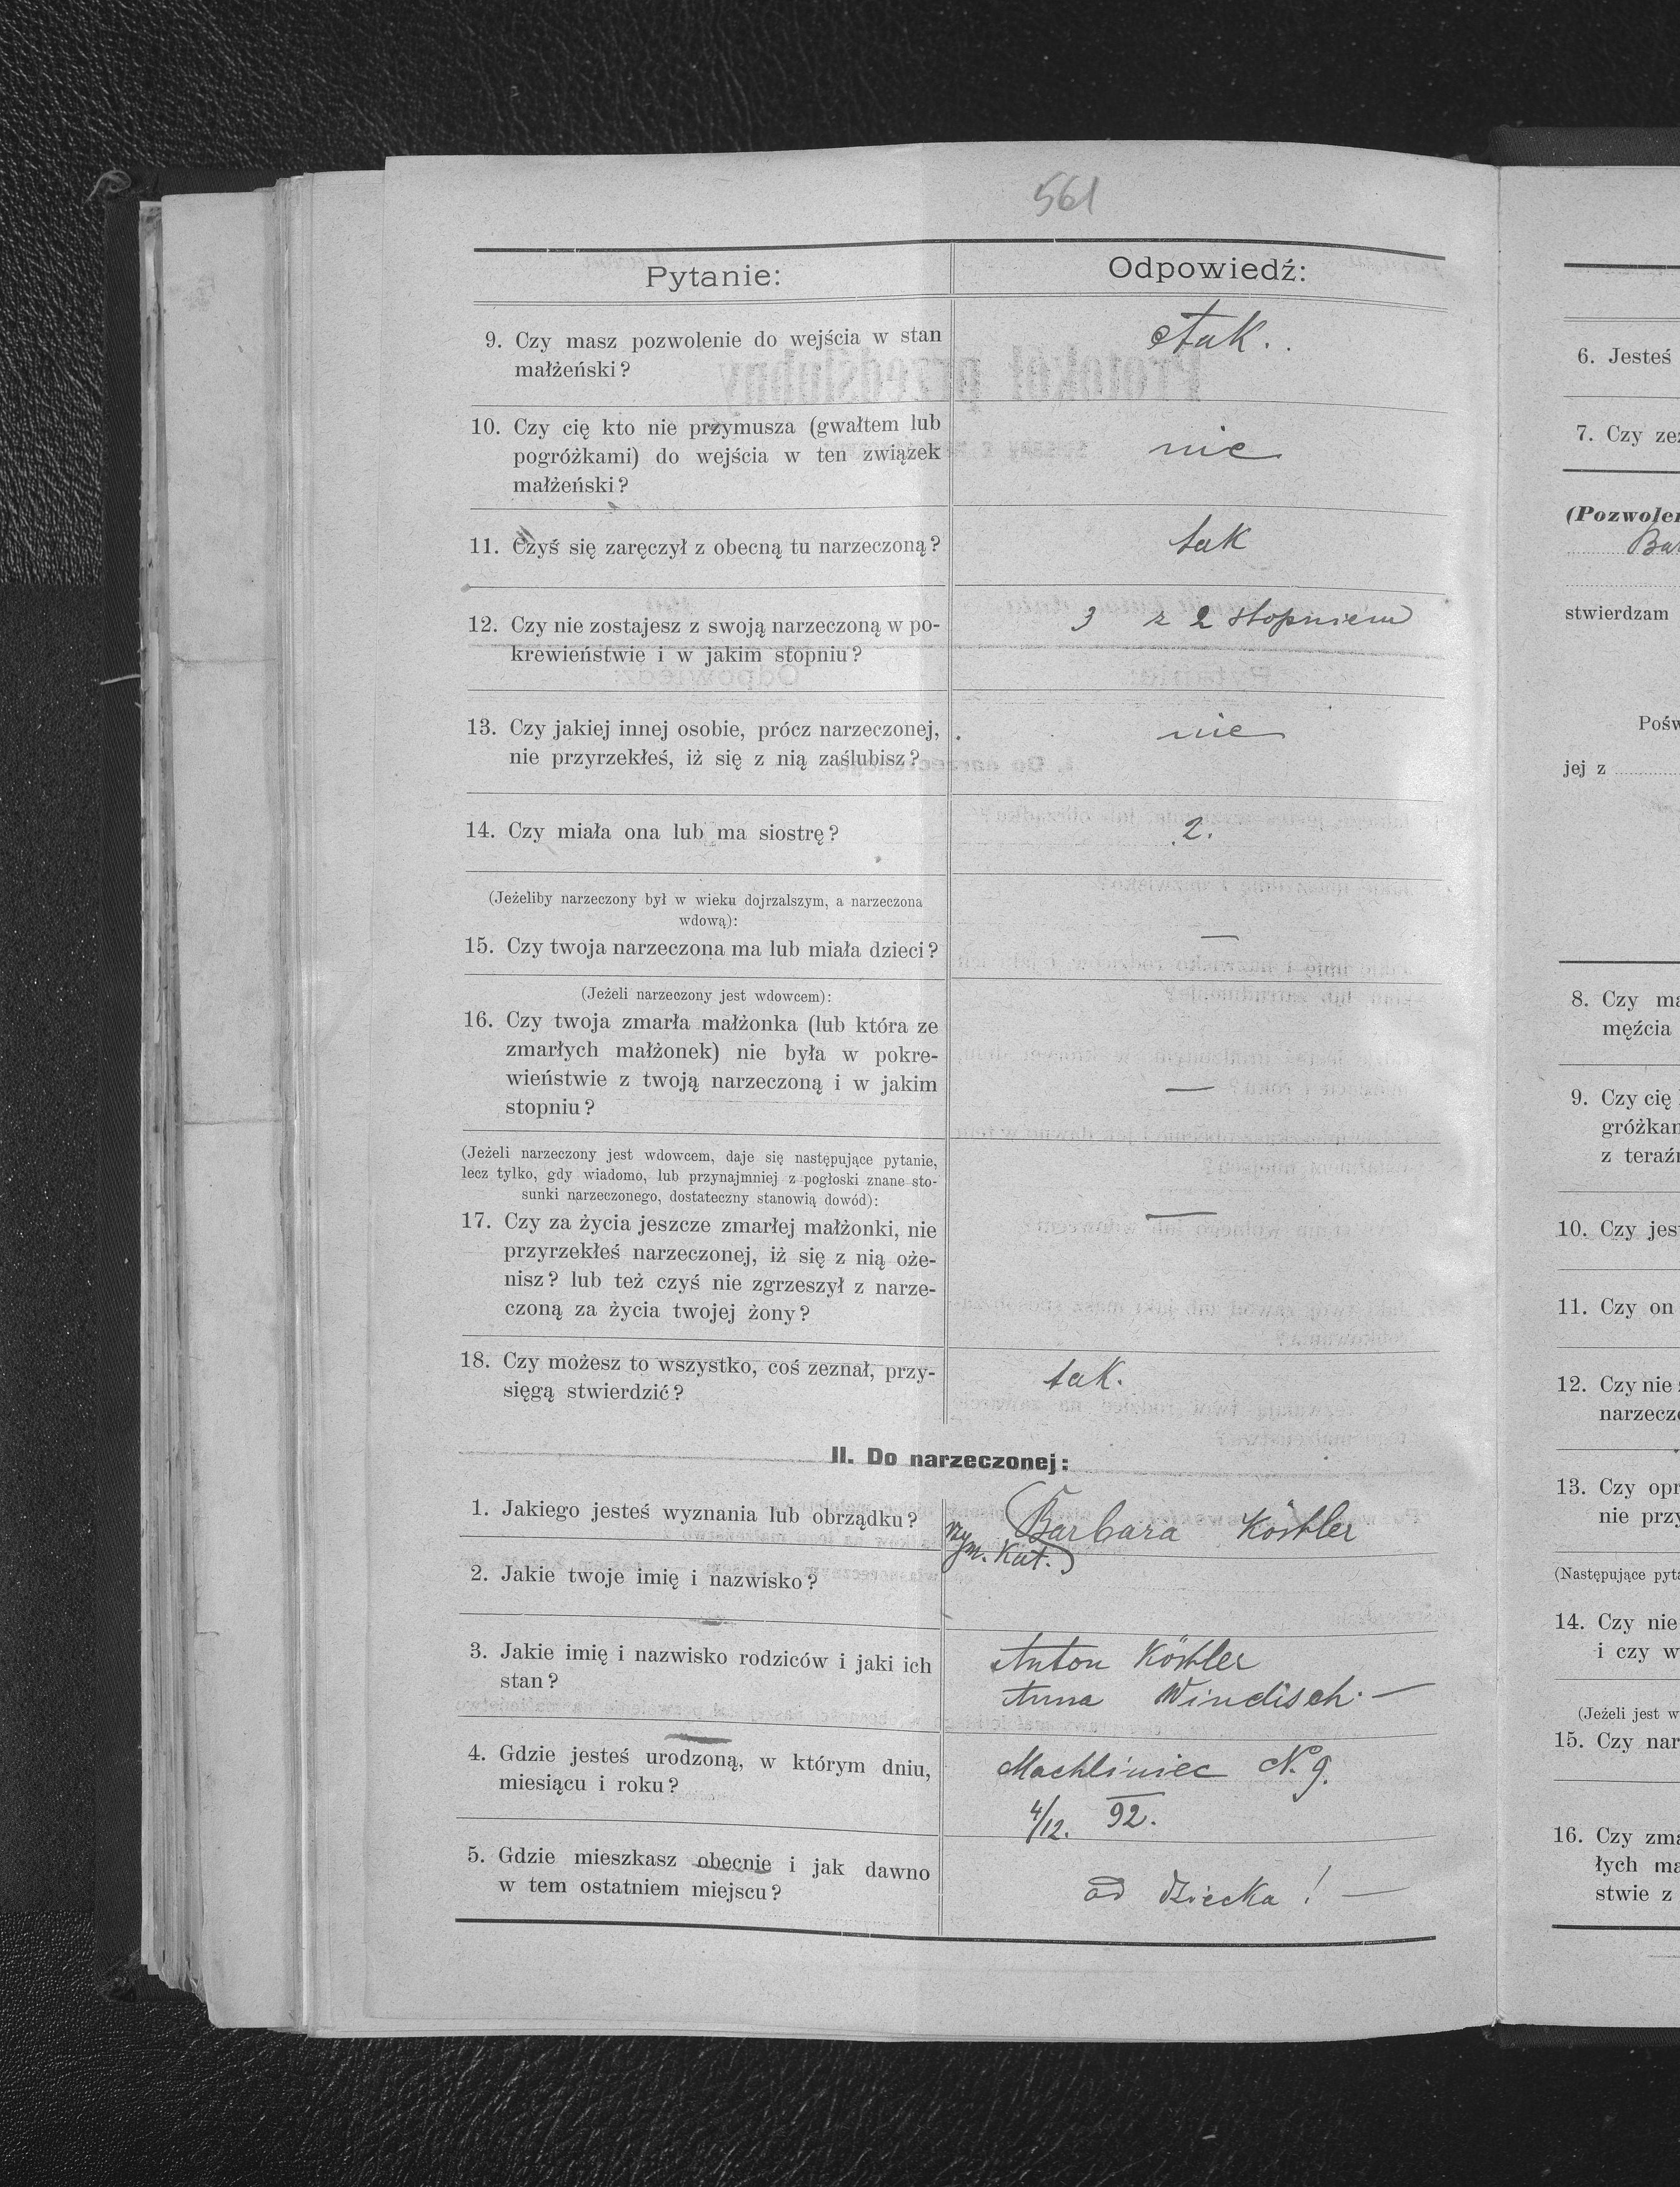 561
Pytanie:
Odpowiedź:
9. Czy masz pozwolenie do wejścia w stan
małżeński?
Tak.
10. Czy cię kto nie przymusza (gwałtem lub
pogróżkami) do wejścia w ten związek
małżeński?
nie
11. Czyś się zaręczył z obecną tu narzeczoną?
tak
12. Czy nie zostajesz z swoją narzeczoną w po-
krewieństwie i w jakim stopniu?
3 z 2 stopniem
13. Czy jakiej innej osobie, prócz narzeczonej,
nie przyrzekłeś, iż się z nią zaślubisz?
nie
14. Czy miała ona lub ma siostrę?
2.
(Jeżeliby narzeczony był w wieku dojrzalszym, a narzeczona
wdową):
15. Czy twoja narzeczona ma lub miała dzieci?
—
(Jeżeli narzeczony jest wdowcem):
16. Czy twoja zmarła małżonka (lub która ze
zmarłych małżonek) nie była w pokre-
wieństwie z twoją narzeczoną i w jakim
stopniu?
—
(Jeżeli narzeczony jest wdowcem, daje się następujące pytanie,
lecz tylko, gdy wiadomo, lub przynajmniej z pogłoski znane sto-
sunki narzeczonego, dostateczny stanowią dowód):
17. Czy za życia jeszcze zmarłej małżonki, nie
przyrzekłeś narzeczonej, iż się z nią oże-
nisz? lub też czyś nie zgrzeszył z narze-
czoną za życia twojej żony?
—
18. Czy możesz to wszystko, coś zeznał, przy-
sięgą stwierdzić?
tak.
II. Do narzeczonej:
1. Jakiego jesteś wyznania lub obrządku?
rzym. kat.
2. Jakie twoje imię i nazwisko?
Barbara Köstler
3. Jakie imię i nazwisko rodziców i jaki ich
stan?
Anton Köstler
Anna Windisch. —
4. Gdzie jesteś urodzoną, w którym dniu,
miesiącu i roku?
Machliniec N. 9.
4/12. 92.
5. Gdzie mieszkasz obecnie i jak dawno
w tem ostatniem miejscu?
od dziecka! —
6. Jesteś
7. Czy
(Pozwolen
stwierdzam
jej z
8. Czy
męźcia
9. Czy cię
z
10. Czy
11. Czy on
12. Czy nie
13. Czy
nie
14. Czy nie
i czy w
(Jeżeli jest
15. Czy
16. Czy
stwie z